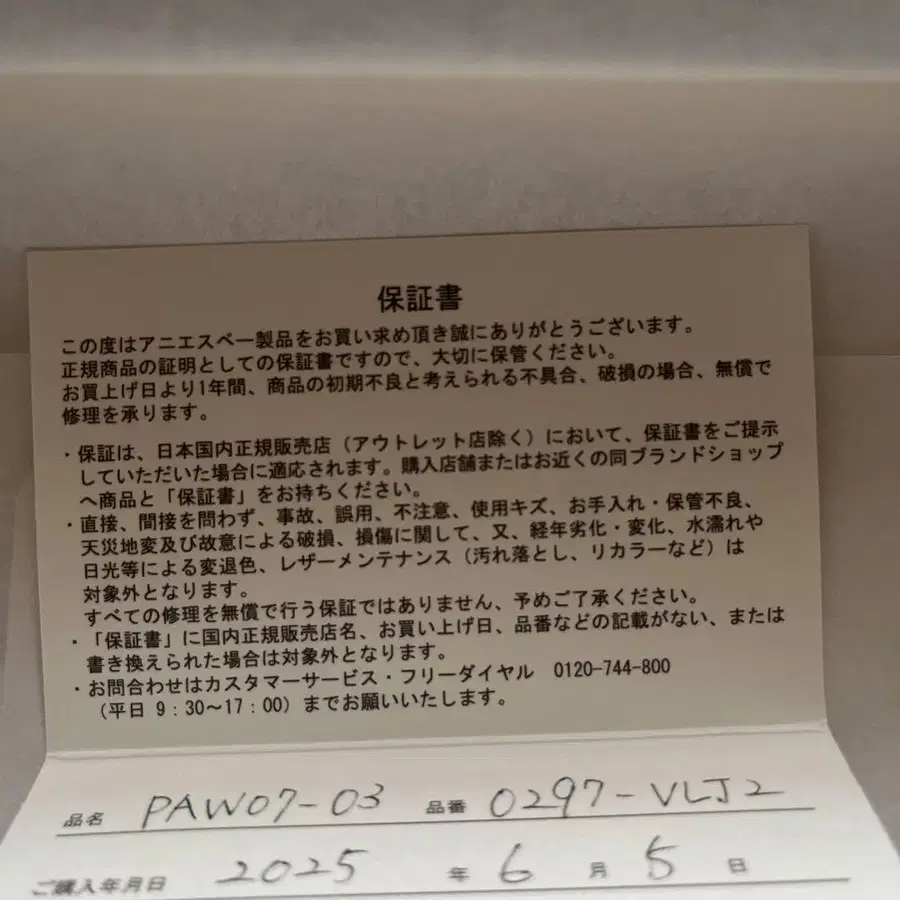 保証書
この度はアニエスベー製品をお買い求め頂き誠にありがとうございます。
正規商品の証明としての保証書ですので、大切に保管ください。
お買上げ日より1年間、商品の初期不良と考えられる不具合、破損の場合、無償で
修理を承ります。
・保証は、日本国内正規販売店（アウトレット店除く）において、保証書をご提示
していただいた場合に適応されます。購入店舗またはお近くの同ブランドショップ
へ商品と「保証書」をお持ちください。
・直接、間接を問わず、事故、誤用、不注意、使用キズ、お手入れ・保管不良、
天災地変及び故意による破損、損傷に関して、又、経年劣化・変化、水濡れや
日光等による変退色、レザーメンテナンス（汚れ落とし、リカラーなど）は
対象外となります。
すべての修理を無償で行う保証ではありません、予めご了承ください。
・「保証書」に国内正規販売店名、お買い上げ日、品番などの記載がない、または
書き換えられた場合は対象外となります。
・お問合わせはカスタマーサービス・フリーダイヤル 0120-744-800
（平日 9：30～17：00）までお願いいたします。
品名 PAW07-03 品番 0297-VLJ2
ご購入年月日 2025 年 6 月 5 日